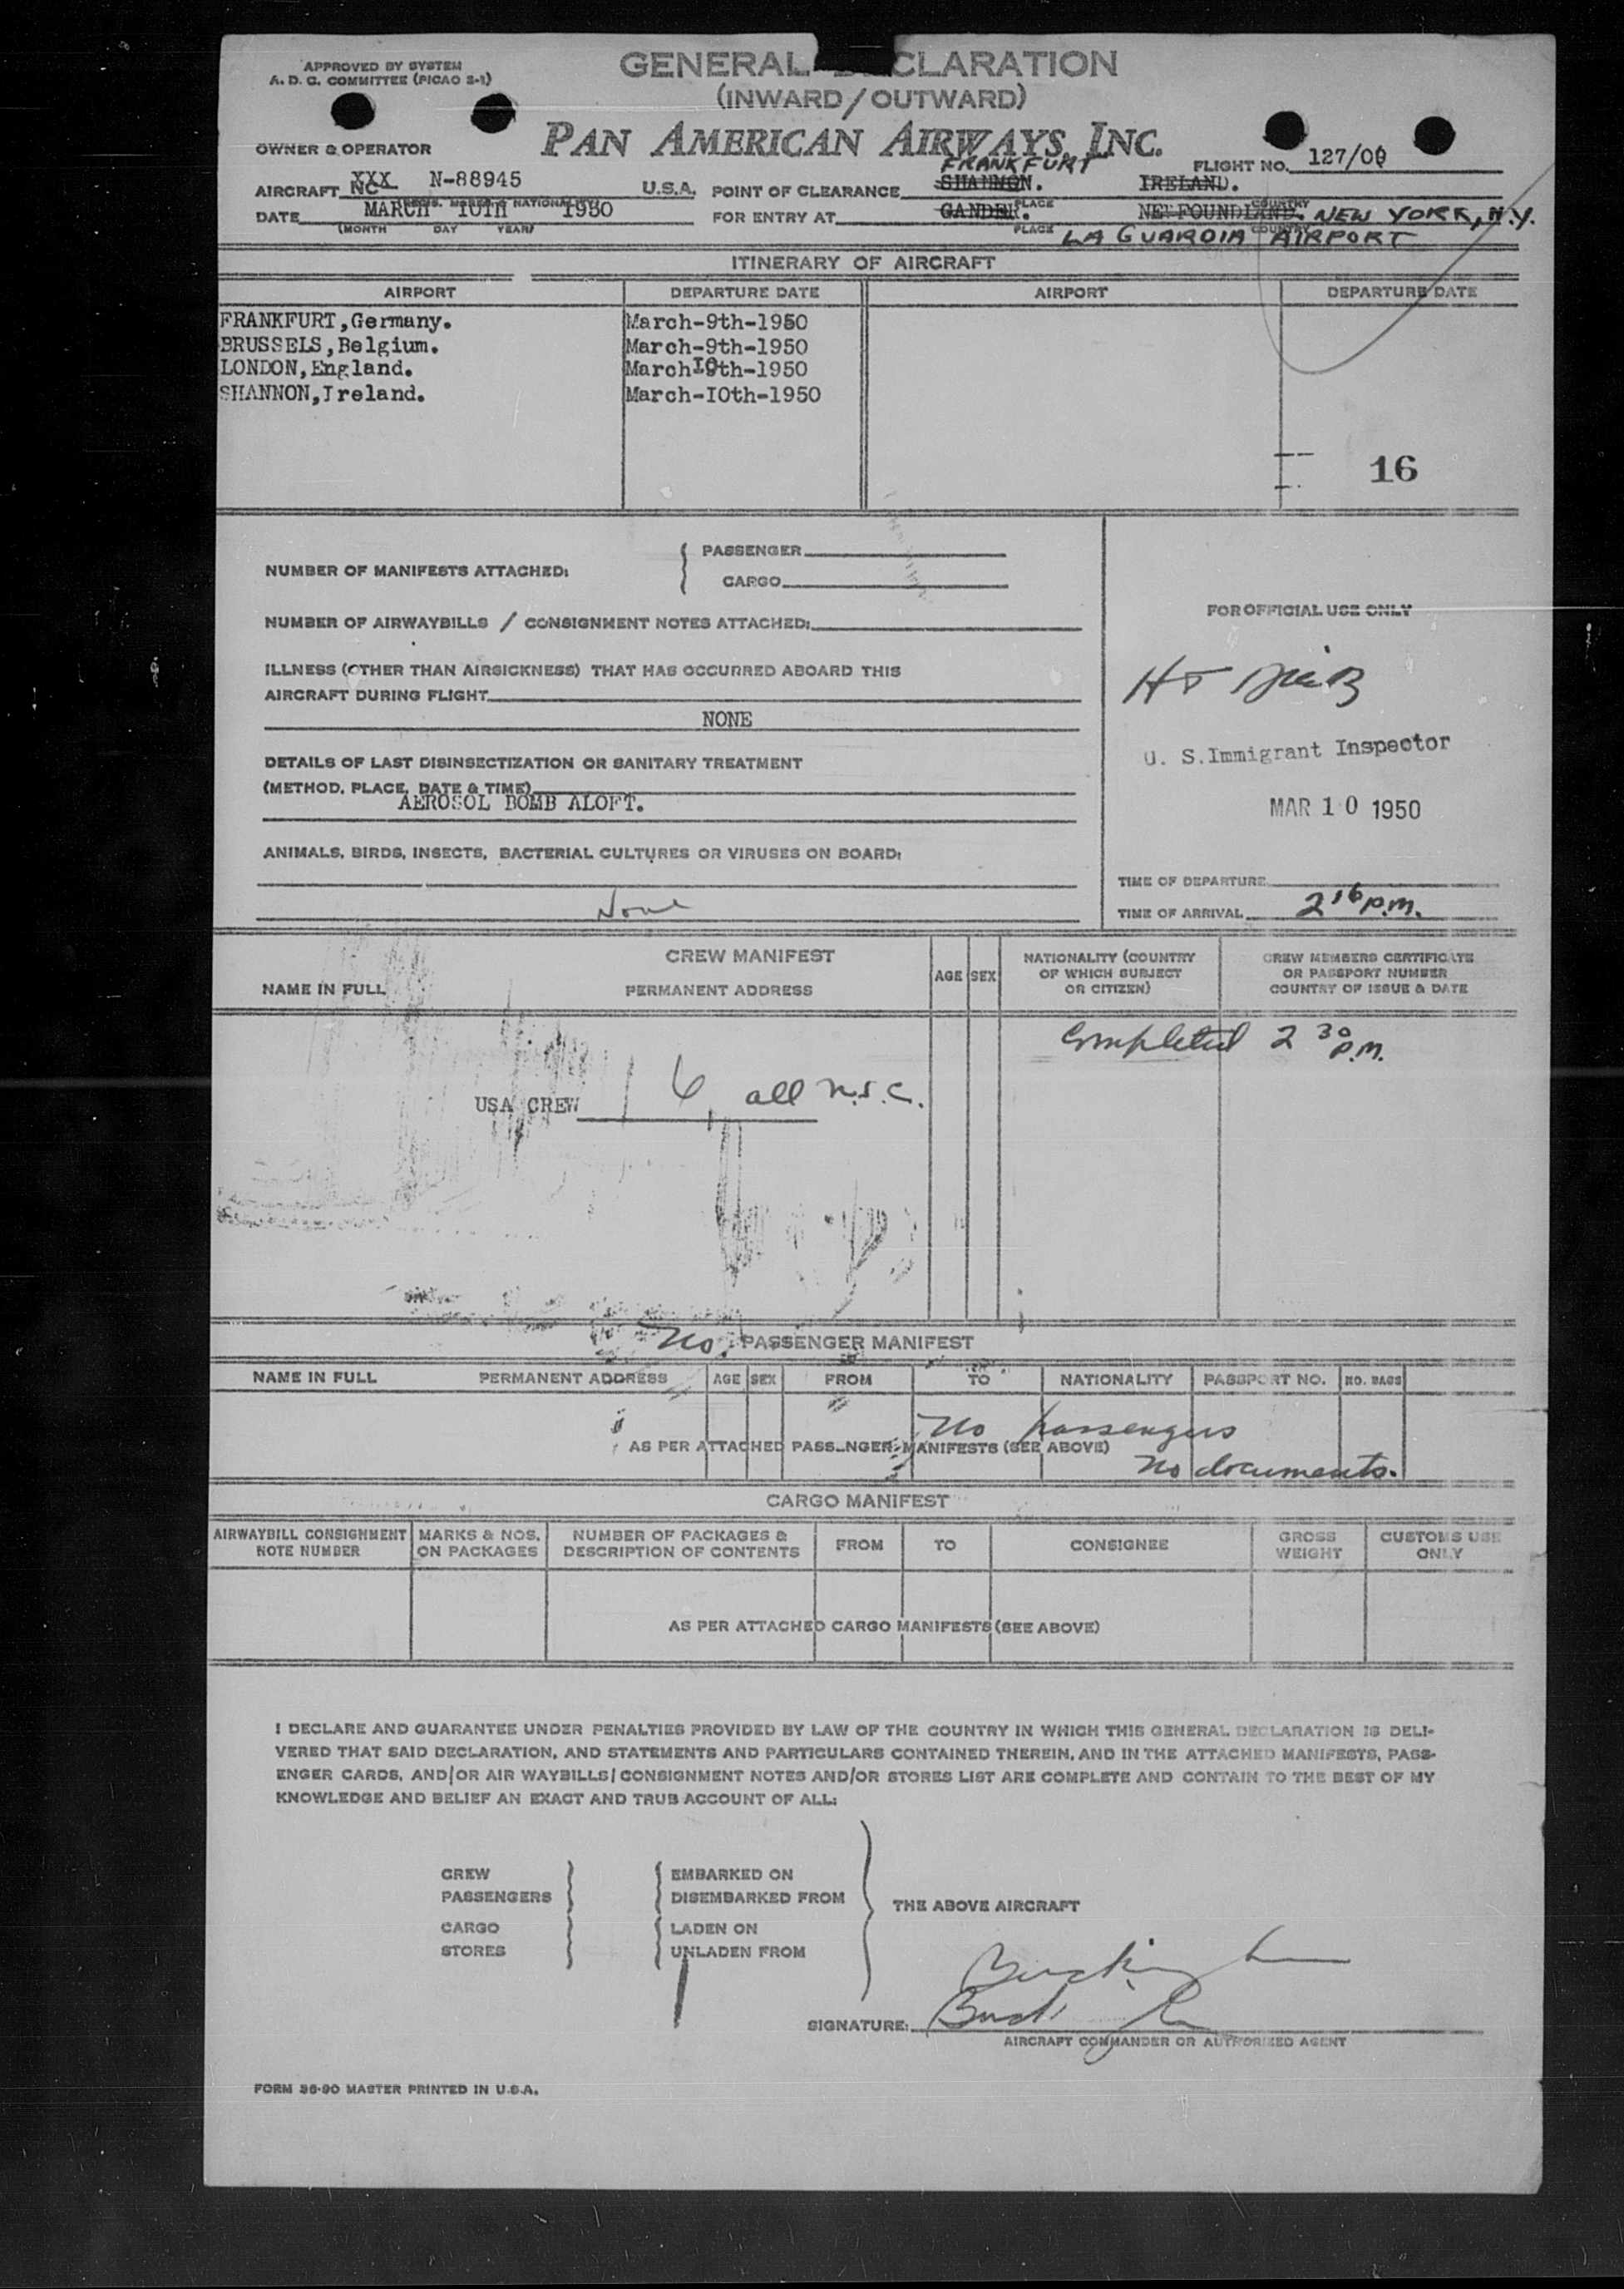 APPROVED BY SYSTEM
A. D. C. COMMITTEE (PICAO 2-1)
GENERAL CLARATION
(INWARD/OUTWARD)
OWNER & OPERATOR
PAN AMERICAN AIRWAYS, INC.
FLIGHT NO. 127/00
FRANKFURT
AIRCRAFT NC XXX N-88945 U.S.A. POINT OF CLEARANCE SHANNON. IRELAND.
(REGIS. MARKS & NATIONALITY) PLACE COUNTRY
DATE MARCH 10TH 1950 FOR ENTRY AT GANDER. NEWFOUNDLAND. NEW YORK, N.Y.
(MONTH DAY YEAR) PLACE COUNTRY
LA GUARDIA AIRPORT
ITINERARY OF AIRCRAFT
AIRPORT DEPARTURE DATE AIRPORT DEPARTURE DATE
FRANKFURT,Germany. March-9th-1950
BRUSSELS,Belgium. March-9th-1950
LONDON,England. March I0th-1950
SHANNON,Ireland. March-I0th-1950
16
NUMBER OF MANIFESTS ATTACHED: PASSENGER
CARGO
NUMBER OF AIRWAYBILLS / CONSIGNMENT NOTES ATTACHED:
FOR OFFICIAL USE ONLY
ILLNESS (OTHER THAN AIRSICKNESS) THAT HAS OCCURRED ABOARD THIS
AIRCRAFT DURING FLIGHT
NONE
U. S. Immigrant Inspector
DETAILS OF LAST DISINSECTIZATION OR SANITARY TREATMENT
(METHOD, PLACE, DATE & TIME)
AEROSOL BOMB ALOFT.
MAR 10 1950
ANIMALS, BIRDS, INSECTS, BACTERIAL CULTURES OR VIRUSES ON BOARD:
None
TIME OF DEPARTURE
TIME OF ARRIVAL 2 16 P.M.
CREW MANIFEST
NAME IN FULL PERMANENT ADDRESS AGE SEX NATIONALITY (COUNTRY OF WHICH SUBJECT OR CITIZEN) CREW MEMBERS CERTIFICATE OR PASSPORT NUMBER COUNTRY OF ISSUE & DATE
Completed 2 30 P.M.
USA CREW 6, all
No PASSENGER MANIFEST
NAME IN FULL PERMANENT ADDRESS AGE SEX FROM TO NATIONALITY PASSPORT NO. NO. BAGS
No passengers
AS PER ATTACHED PASSENGER MANIFESTS (SEE ABOVE)
No documents.
CARGO MANIFEST
AIRWAYBILL CONSIGNMENT NOTE NUMBER MARKS & NOS. ON PACKAGES NUMBER OF PACKAGES & DESCRIPTION OF CONTENTS FROM TO CONSIGNEE GROSS WEIGHT CUSTOMS USE ONLY
AS PER ATTACHED CARGO MANIFESTS (SEE ABOVE)
I DECLARE AND GUARANTEE UNDER PENALTIES PROVIDED BY LAW OF THE COUNTRY IN WHICH THIS GENERAL DECLARATION IS DELI-
VERED THAT SAID DECLARATION, AND STATEMENTS AND PARTICULARS CONTAINED THEREIN, AND IN THE ATTACHED MANIFESTS, PASS-
ENGER CARDS, AND/OR AIR WAYBILLS/CONSIGNMENT NOTES AND/OR STORES LIST ARE COMPLETE AND CONTAIN TO THE BEST OF MY
KNOWLEDGE AND BELIEF AN EXACT AND TRUE ACCOUNT OF ALL:
CREW EMBARKED ON
PASSENGERS DISEMBARKED FROM
THE ABOVE AIRCRAFT
CARGO LADEN ON
STORES UNLADEN FROM
SIGNATURE:
AIRCRAFT COMMANDER OR AUTHORIZED AGENT
FORM 36-90 MASTER PRINTED IN U.S.A.